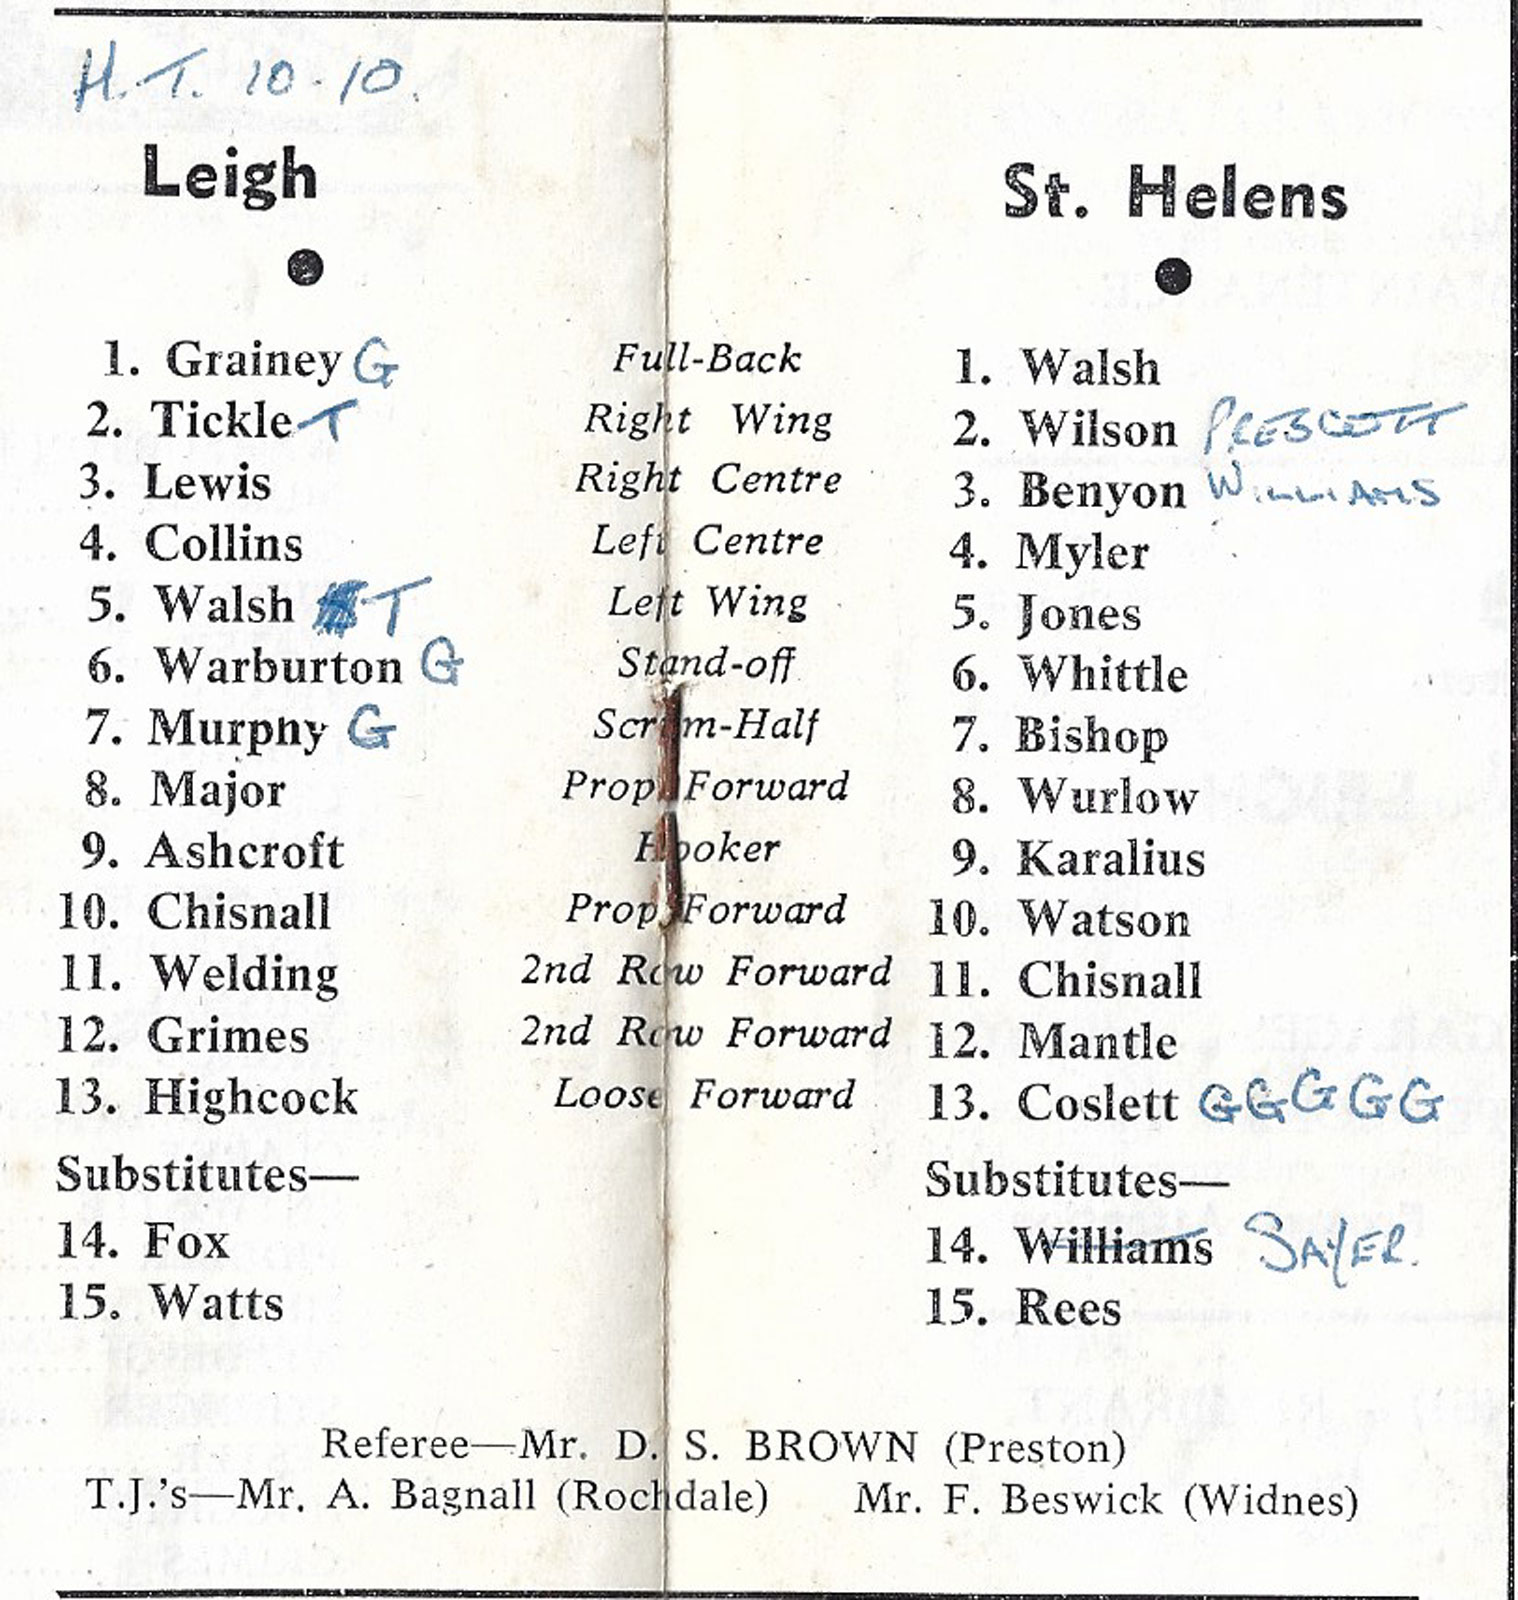 H.T. 10-10.
Leigh St. Helens
1. Grainey G Full-Back 1. Walsh
2. Tickle T Right Wing 2. Wilson PRESCOTT
3. Lewis Right Centre 3. Benyon WILLIAMS
4. Collins Left Centre 4. Myler
5. Walsh T Left Wing 5. Jones
6. Warburton G Stand-off 6. Whittle
7. Murphy G Scrum-Half 7. Bishop
8. Major Prop Forward 8. Wurlow
9. Ashcroft Hooker 9. Karalius
10. Chisnall Prop Forward 10. Watson
11. Welding 2nd Row Forward 11. Chisnall
12. Grimes 2nd Row Forward 12. Mantle
13. Highcock Loose Forward 13. Coslett G G G G G
Substitutes— Substitutes—
14. Fox 14. Williams SAYER.
15. Watts 15. Rees
Referee—Mr. D. S. BROWN (Preston)
T.J.'s—Mr. A. Bagnall (Rochdale) Mr. F. Beswick (Widnes)